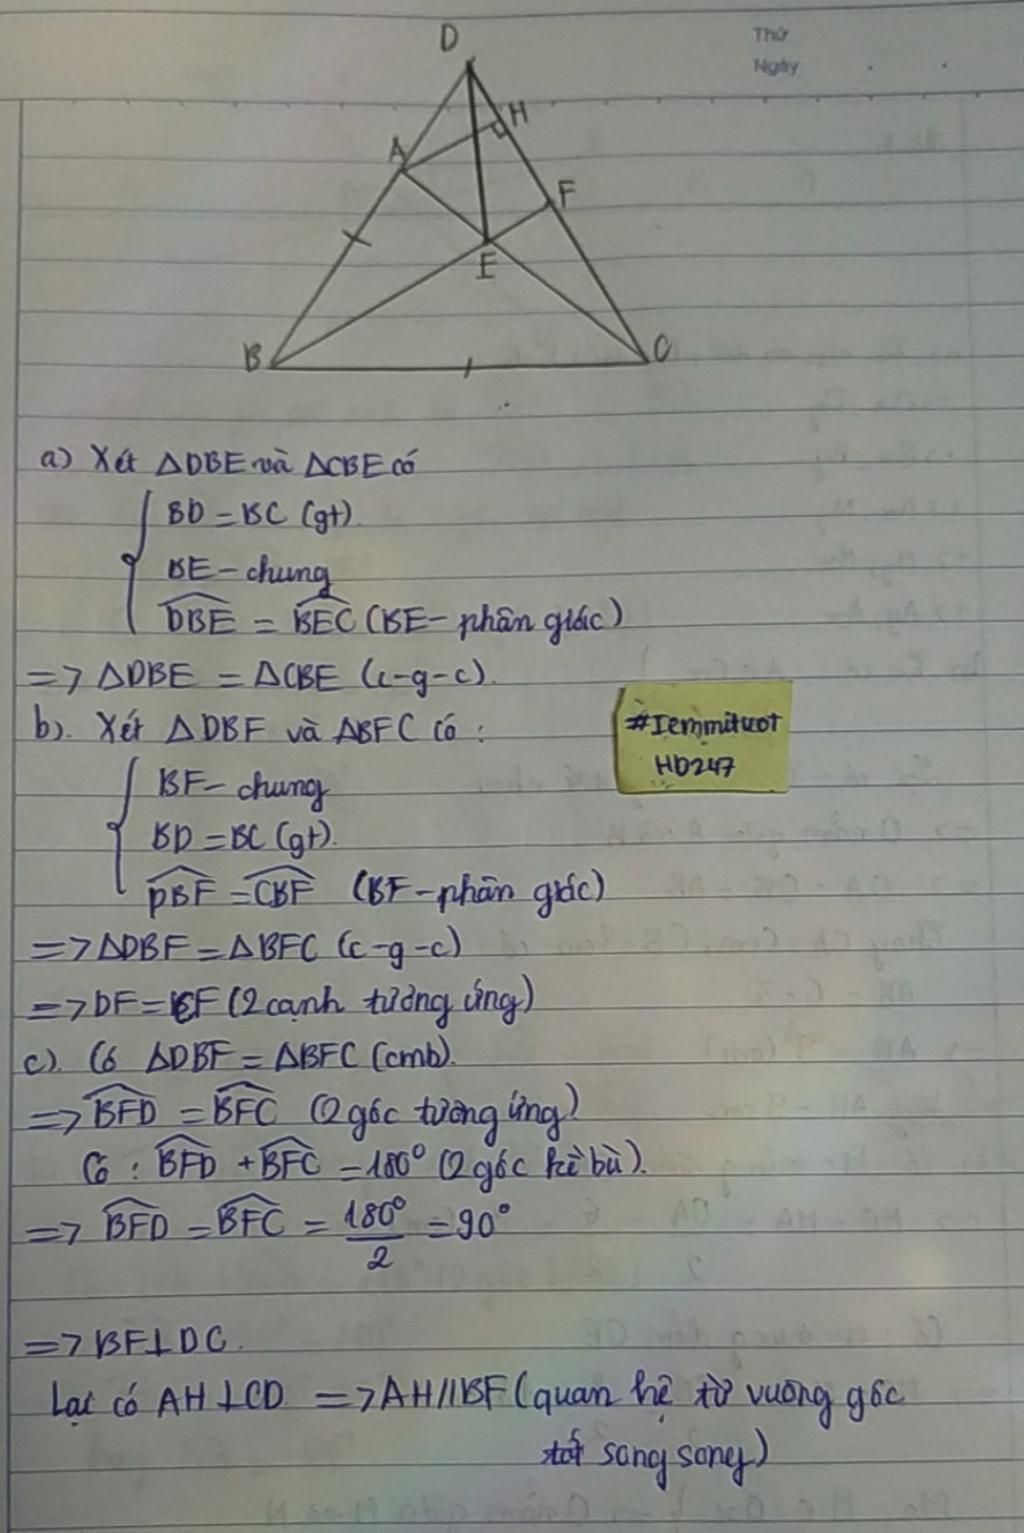 Thứ
Ngày
D
H
A
F
E
B
C
a) Xét ΔDBE và ΔCBE có
BD = BC (gt)
BE - chung
\widehat{DBE} = \widehat{BEC} (BE - phân giác)
=> ΔDBE = ΔCBE (c-g-c).
b). Xét ΔDBF và ΔBFC có :
#Iemmituot
HD247
BF - chung
BD = BC (gt).
\widehat{DBF} = \widehat{CBF} (BF - phân giác)
=> ΔDBF = ΔBFC (c-g-c)
=> DF = CF (2 cạnh tương ứng)
c). Có ΔDBF = ΔBFC (cmb).
=> \widehat{BFD} = \widehat{BFC} (2 góc tương ứng)
Có : \widehat{BFD} + \widehat{BFC} = 180° (2 góc kề bù).
=> \widehat{BFD} = \widehat{BFC} = \frac{180°}{2} = 90°
=> BF⊥DC.
Lại có AH⊥CD => AH//BF (quan hệ từ vuông góc
tới song song)